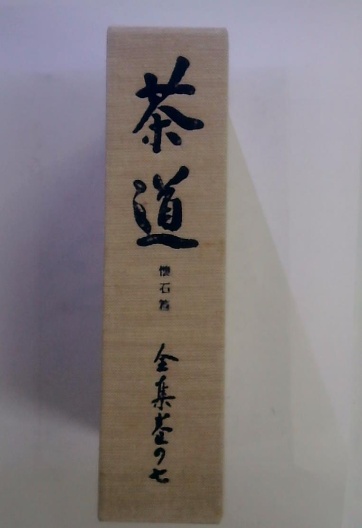 茶道
懷石篇
全集巻の七